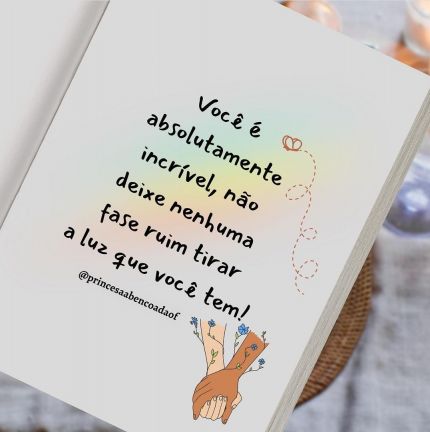 Você é
absolutamente
incrível, não
deixe nenhuma
fase ruim tirar
a luz que você tem!
@princesaabencoadaof